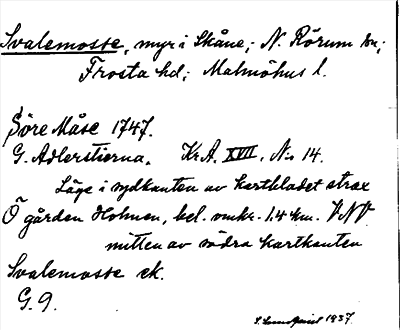 Svalemosse, myr i Skåne; N. Rörum sn;
Frosta hd; Malmöhus l.
Söre Måse 1747.
G. Adlerstierna. Kr.A. XVII. N:o 14.
Läge i sydkanten av kartbladet strax
Ö gården Holmen, bel. omkr. 1.4 km. VNV
mitten av södra kartkanten
Svalemosse ek.
G. 9.
1937.